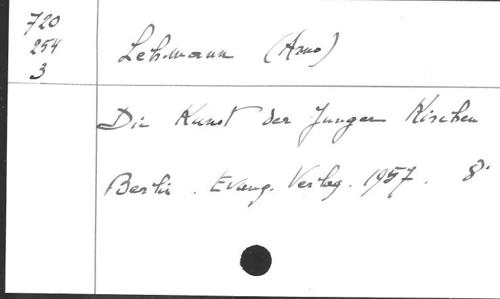 720
254
3
Lehmann (Arno)
Die Kunst der Jungen Kirchen
Berlin. Evang. Verlag. 1957. 8°